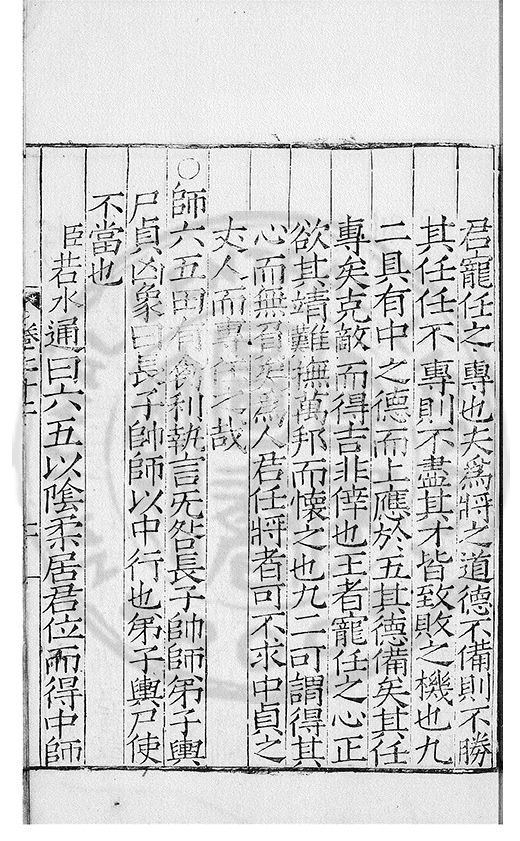 君寵任之專也夫爲將之道德不備則不勝
其任任不專則不盡其才皆致敗之機也九
二具有中之德而上應於五其德備矣其任
專矣克敵而得吉非倖也王者寵任之心正
欲其靖難撫萬邦而懷之也九二可謂得其
心而無咎矣爲人君任將者可不求中貞之
丈人而專任之哉
○師六五田有禽利執言无咎長子帥師弟子輿
尸貞凶象曰長子帥師以中行也弟子輿尸使
不當也
臣若水通曰六五以陰柔居君位而得中師